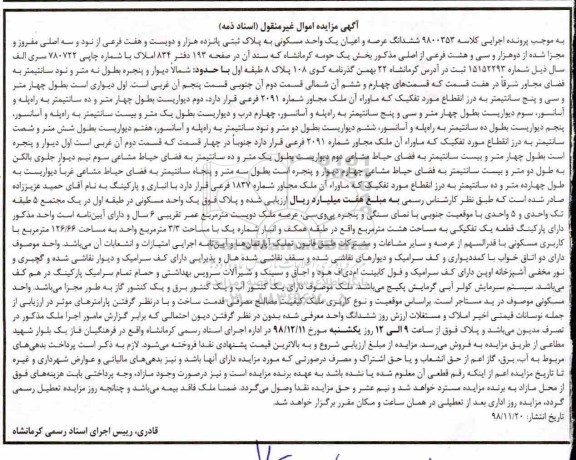 آگهی مزایده اموال غیرمنقول (اسناد ذمه)
به موجب پرونده اجرایی کلاسه ۹۸۰۰۳۵۳ ششدانگ عرصه و اعیان یک واحد مسکونی به پلاک ثبتی پانزده هزار و دویست و هفت فرعی از نود و سه اصلی مفروز و
مجزا شده از دوهزار و سی و هشت فرعی از اصلی مذکور بخش یک حومه کرمانشاه که سند آن در صفحه ۱۹۳ دفتر ۸۳۴ املاک با شماره چاپی ۷۸۰۷۲۲ سری الف
سال ذیل شماره ۱۵۱۵۲۲۹۳ ثبت در آدرس کرمانشاه ۲۲ بهمن گذرنامه کوی ۱۰۸ پلاک ۸ طبقه اول با حدود: شمالا دیوار و پنجره بطول نه متر و نود سانتیمتر به
فضای مجاور شرقا در هفت قسمت که قسمت‌های چهارم و ششم آن شمالی قسمت دوم آن جنوبی قسمت پنجم آن غربی است. اول دیواری است بطول چهار متر
و سی و پنج سانتیمتر به درز انقطاع مورد تفکیک که ماوراء آن ملک مجاور شماره ۲۰۹۱ فرعی قرار دارد، دوم دیواریست بطول چهار متر و ده سانتیمتر به راه‌پله و
آسانسور، سوم دیواریست بطول چهار متر و سی و پنج سانتیمتر به راه‌پله و آسانسور، چهارم درب و دیواریست بطول یک متر و بیست سانتیمتر به راه‌پله و آسانسور،
پنجم دیواریست بطول ده سانتیمتر به راه‌پله و آسانسور، ششم دیواریست بطول دو متر و نود سانتیمتر به راه‌پله و آسانسور، هفتم دیواریست بطول شش متر و شصت
سانتیمتر به درز انقطاع مورد تفکیک که ماوراء آن ملک مجاور شماره ۲۰۹۱ فرعی قرار دارد جنوبا در چهار قسمت که قسمت دوم آن غربی است اول دیوار و پنجره
است بطول چهار متر و بیست سانتیمتر به فضای حیاط مشاعی دوم دیواریست بطول یک متر و ده سانتیمتر به فضای حیاط مشاعی سوم نیم دیوار جلوی بالکن
به طول دو متر و بیست سانتیمتر به فضای حیاط مشاعی چهارم دیوار و پنجره است بطول سه متر و پنجاه سانتیمتر به فضای حیاط مشاعی غربا دیواریست به
طول چهارده متر و ده سانتیمتر به درز انقطاع مورد تفکیک که ماوراء آن ملک مجاور شماره ۱۸۳۷ فرعی قرار دارد با انباری و پارکینگ به نام آقای حمید عزیززاده
صادر شده است که طبق نظر کارشناس رسمی به مبلغ هفت میلیارد ریال ارزیابی شده و پلاک فوق یک واحد مسکونی در طبقه اول در یک مجتمع ۵ طبقه
تک واحدی و ۵ واحدی با موقعیت جنوبی با نمای سنگی و پنجره پی‌وی‌سی، عرصه ملک دویست مترمربع عمر تقریبی ۶ سال و دارای آیین‌نامه است واحد مذکور
دارای پارکینگ قطعه یک تفکیکی به مساحت هشت مترمربع واقع در طبقه همکف و انبار شماره یک با مساحت ۳/۳ مترمربع واحد به مساحت ۱۲۶/۶۶ مترمربع با
کاربری مسکونی با قدرالسهم از عرصه و سایر مشاعات و مشترکات طبق قانون تملک آپارتمان‌ها و آیین‌نامه اجرایی امتیازات و انشعابات آن می‌باشد. واحد موصوف
دارای دو اتاق خواب با کمددیواری و کف سرامیک و دیوارهای نقاشی شده و سقف نقاشی شده هال و پذیرایی دارای کف سرامیک و دیوار نقاشی شده و گچبری و
نور مخفی آشپزخانه اوپن دارای کف سرامیک و فول کابینت ام‌دی‌اف هود و اجاق و سینک و شیرآلات سرویس بهداشتی و حمام تمام سرامیک پارکینگ در هم کف
می‌باشد. سیستم سرمایش کولر آبی گرمایش پکیج می‌باشد. ملک موصوف دارای یک کنتور آب و یک کنتور برق و یک کنتور گاز به طور مجزا می‌باشد. واحد
مسکونی موصوف در ید مستاجر است. براساس موقعیت و نوع کاربری ملک کیفیت مصالح مصرفی قدمت ساخت و با درنظر گرفتن پارامترهای موثر در ارزیابی از
جمله نوسانات قیمتی اخیر املاک و مستغلات ارزش روز ششدانگ واحد معرفی شده بدون در نظر گرفتن دیون احتمالی که برابر گزارش مامور اجرا ملک مذکور در
تصرف مدیون می‌باشد و پلاک فوق از ساعت ۹ الی ۱۲ روز یکشنبه مورخ ۹۸/۱۲/۱۱ در اداره اجرای اسناد رسمی کرمانشاه واقع در فرهنگیان فاز یک بلوار شهید
مطاعی از طریق مزایده به فروش می‌رسد. مزایده از مبلغ ارزیابی شروع و به بالاترین قیمت پیشنهادی نقدا فروخته می‌شود. لازم به ذکر است پرداخت بدهی‌های
مربوط به آب، برق، گاز اعم از حق انشعاب و یا حق اشتراک و مصرف درصورتی که مورد مزایده دارای آنها باشد و نیز بدهی‌های مالیاتی و عوارض شهرداری و غیره
تا تاریخ مزایده اعم از اینکه رقم قطعی آن معلوم شده یا نشده باشد به عهده برنده مزایده است و نیز درصورت وجود مازاد، وجه پرداختی بابت هزینه‌های فوق
از محل مازاد به برنده مزایده مسترد خواهد شد و نیم عشر و حق مزایده نقدا وصول می‌گردد. ضمنا ملک فاقد بیمه می‌باشد و چنانچه روز مزایده تعطیل رسمی
گردد، مزایده روز اداری بعد از تعطیلی در همان ساعت و مکان مقرر برگزار خواهد شد.
تاریخ انتشار: ۹۸/۱۱/۲۰
قادری، رییس اجرای اسناد رسمی کرمانشاه